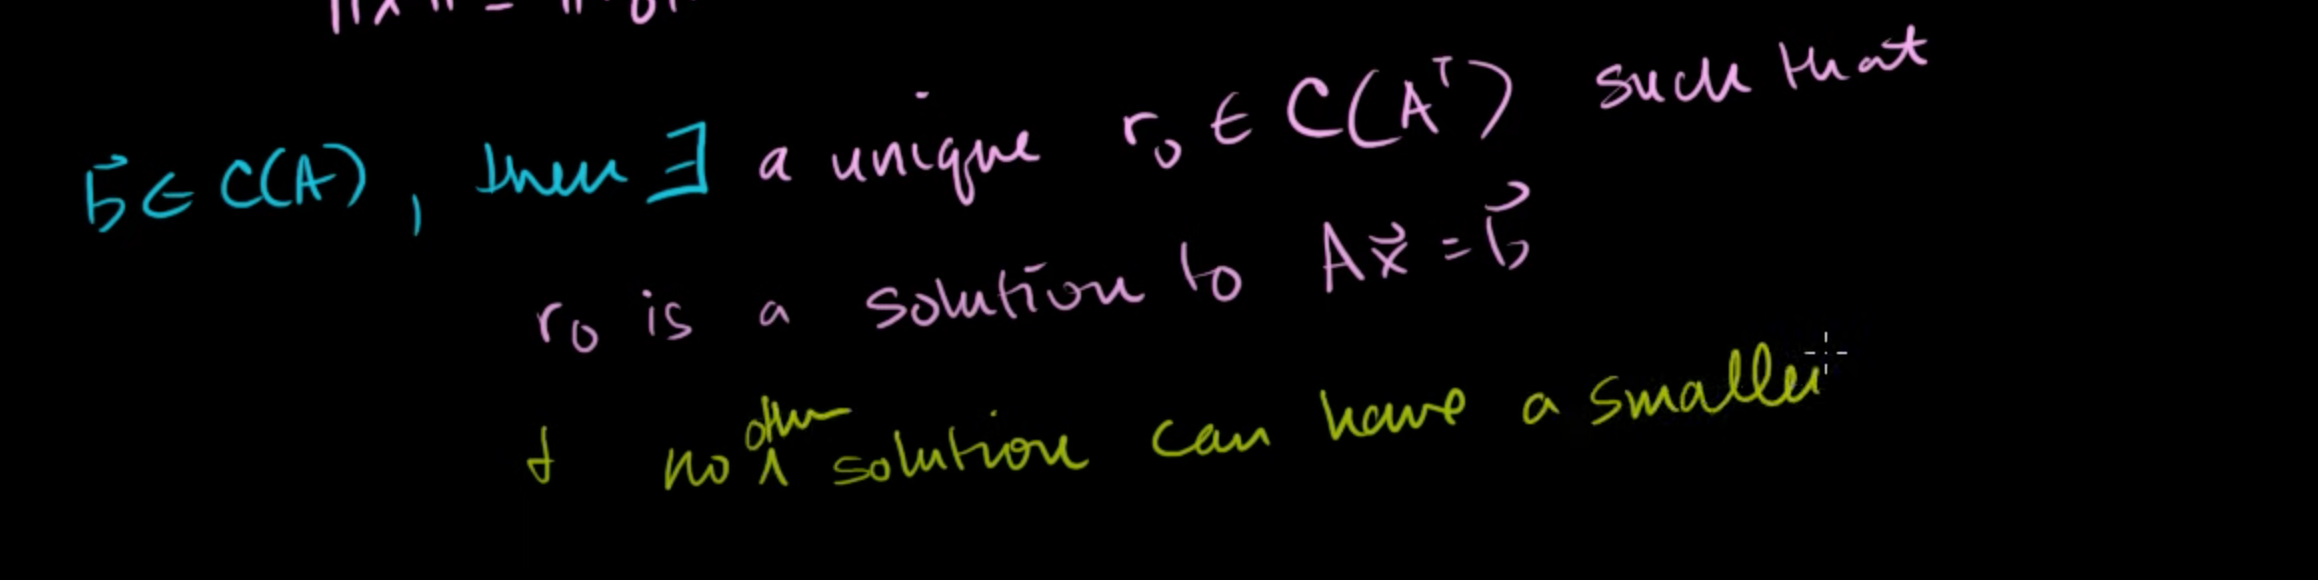 b⃗ ∈ C(A), then ∃ a unique r₀ ∈ C(Aᵀ) such that
r₀ is a solution to Ax⃗ = b⃗
& no other solution can have a smaller